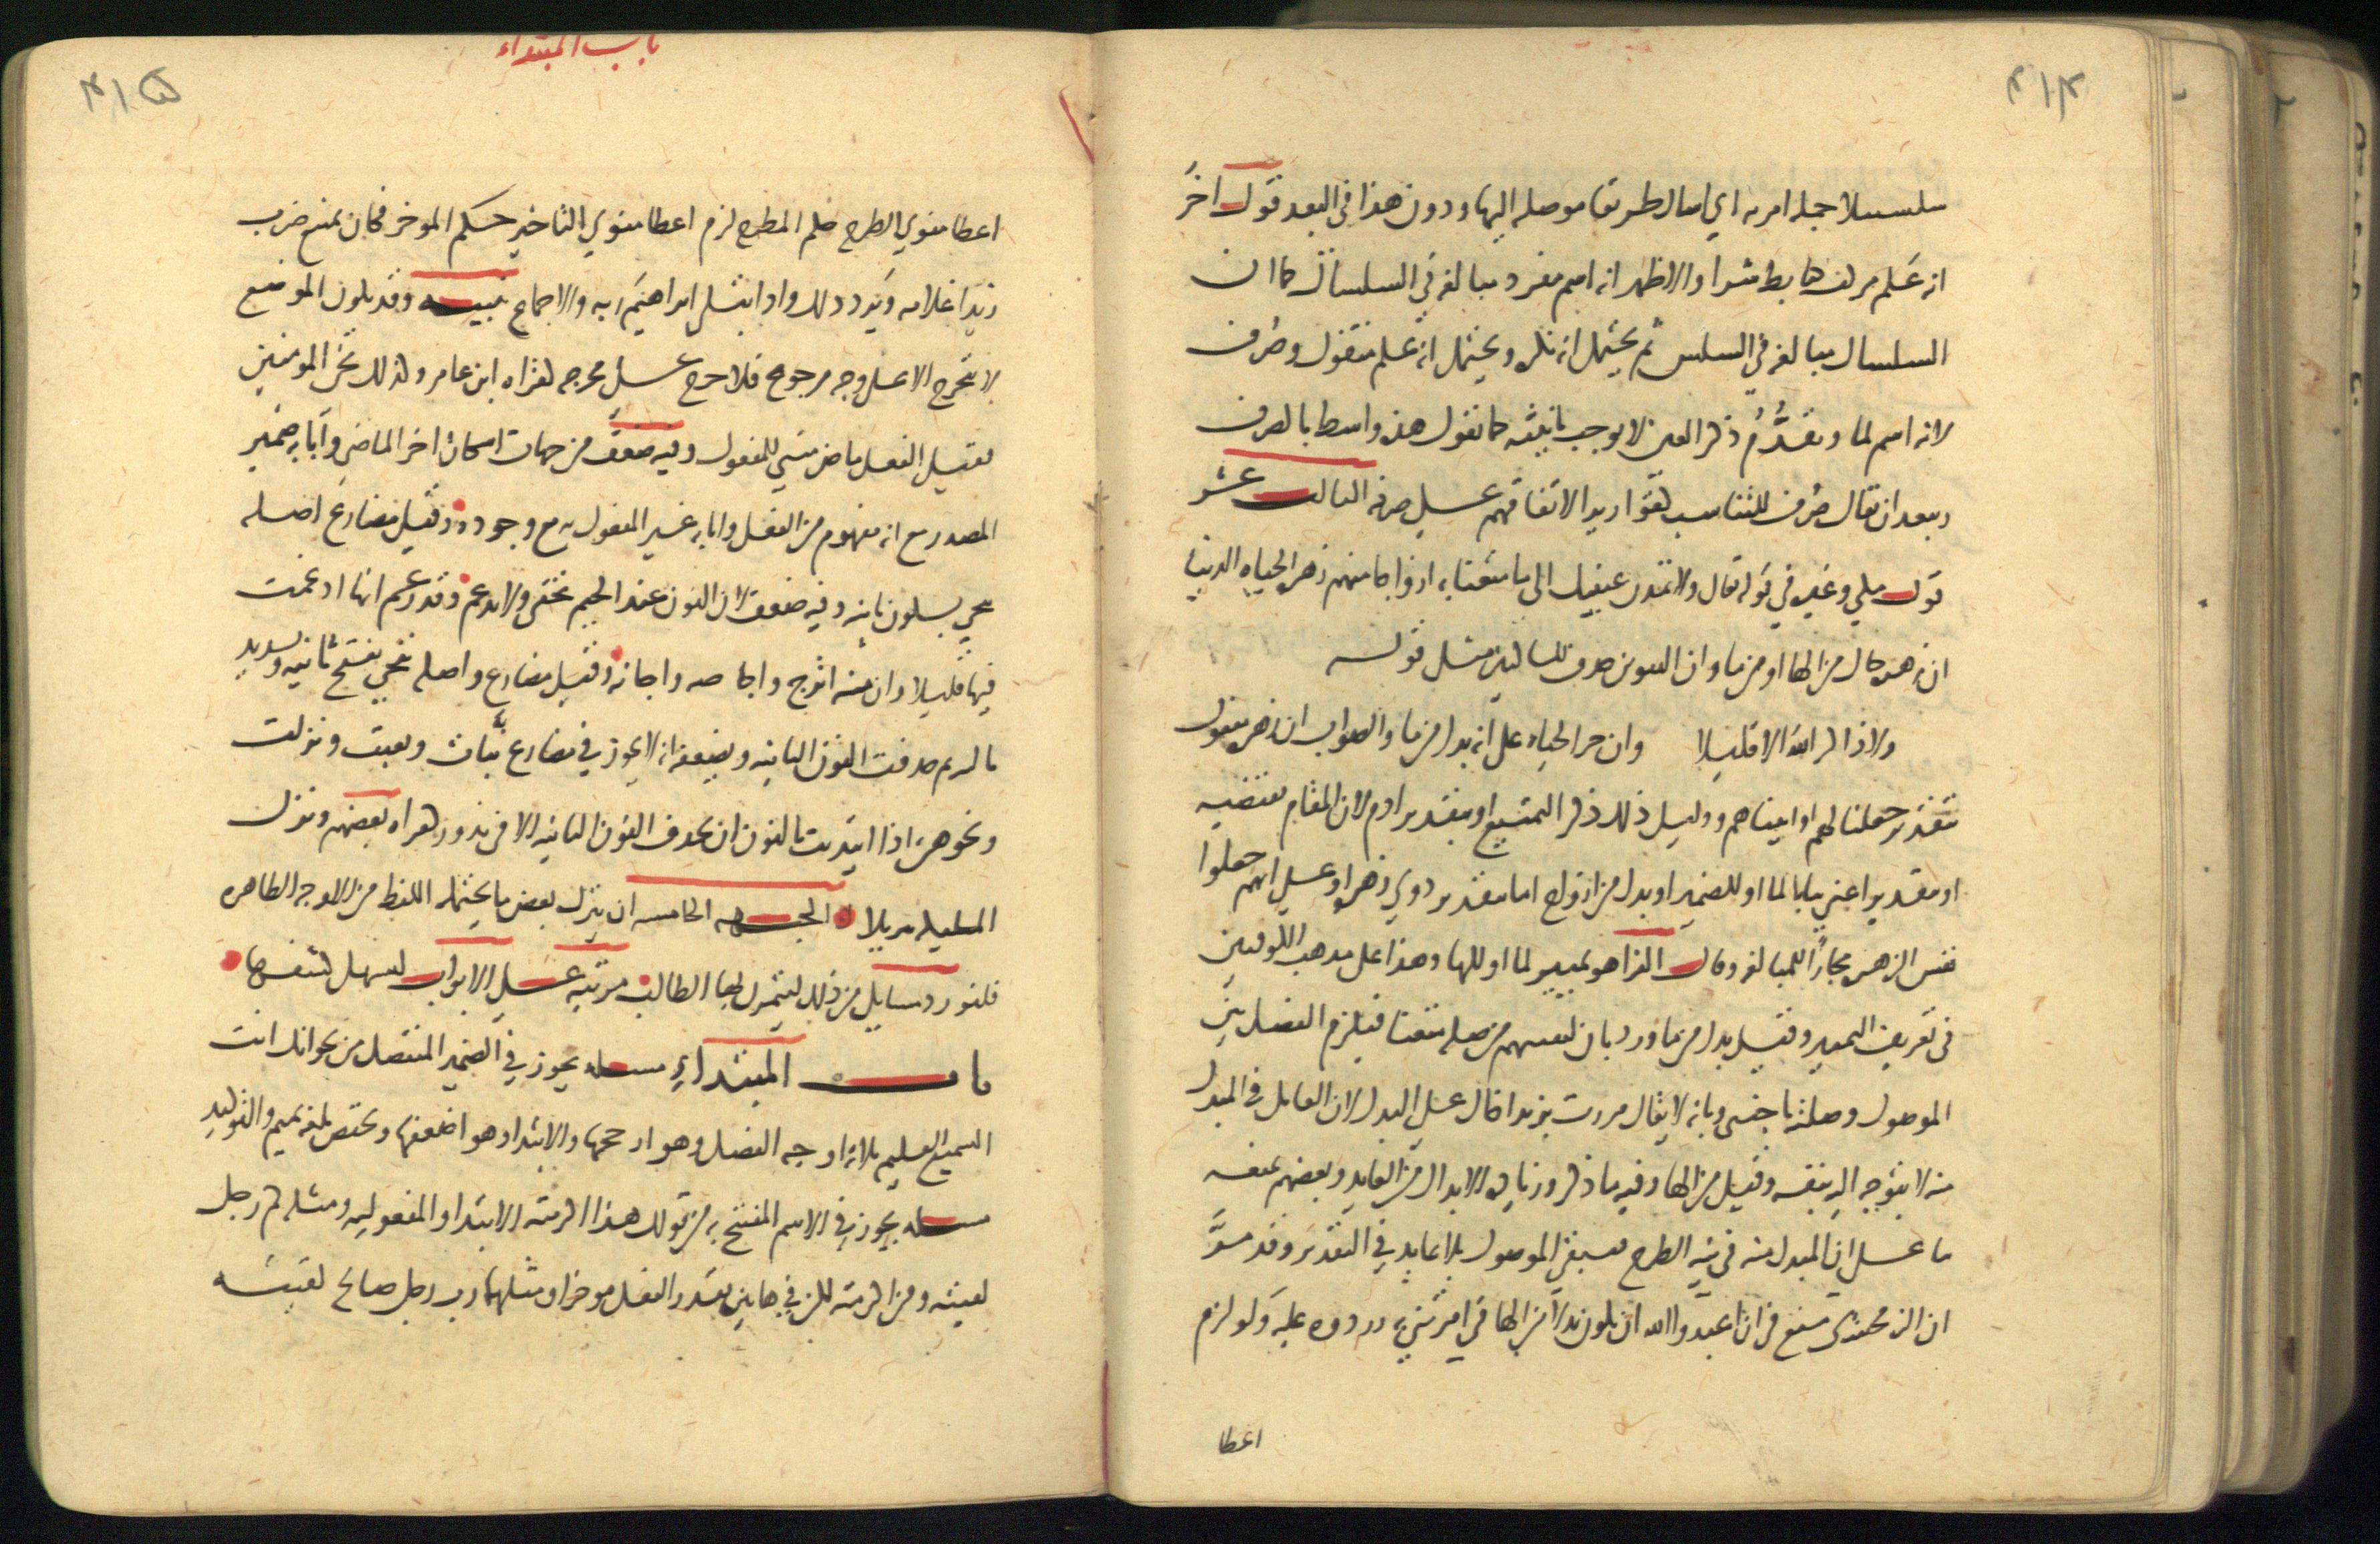 ٤١٤
سلسبيلا جمله امريه اي اسال طريقا موصله اليها ودون هذا في البعد قول اخر
انه علم مركب كتابط شرا والاظهر انه اسم مفرد مبالغه في السلسال كما ان
السلسال مبالغه في السلس ثم يحتمل انه نكره ويحتمل انه علم منقول وصُرف
لانه اسم لما وتقدُّمُ ذكر العين لا يوجب تانيثه كما تقول هذه واسط بالصرف
ويبعد ان يقال صُرف للتناسب كقواريرا لاتفاقهم على صرفه الثالث عشر
قول مكي وغيره في قوله تعالى ولا تمدن عينيك الى ما متعنا به ازواجا منهم زهره الحياه الدنيا
ان زهره حال من الها او من ما وان التنوين حذف للساكنين مثل قوله
ولا ذاكر الله الا قليلا وان جر الحياه على انه بدل من ما والصواب ان زهره مفعول
بتقدير جعلنا لهم او اتيناهم ودليل ذلك ذكر التمتيع او بتقدير اذم لان المقام يقتضيه
او بتقدير اعني بيانا لما او للضمير او بدل من ازواج اما بتقدير ذوي زهره او على انهم جعلوا
نفس الزهره مجازًا للمبالغه وقال الفرا هو تمييز لما او للها وهذا على مذهب الكوفيين
في تعريف التمييز وقيل بدل من ما ورد بان لنفتنهم من صله متعنا فيلزم الفصل بين
الموصول وصلته باجنبي وبانه لا يقال مررت بزيد اخاك على البدل لان العامل في المبدل
منه لا يتوجه اليه بنفسه وقيل من الها وفيه ما ذكر وزياده الابدال من العايد وبعضهم يمنعه
بنا على ان المبدل منه في نيه الطرح فيبقى الموصول بلا عايد في التقدير وقد مرَّ
ان الزمخشري منع في ان اعبدوا الله ان يكون بدلا من الها في امرتني به وردوه عليه ولو لزم
اعطا
باب المبتداء
٤١٥
اعطا منوي الطرح حكم المطرح لزم اعطا منوي التاخير حكم الموخر فكان يمتنع ضرب
زيدا غلامه ويرد ذلك واذ ابتلى ابراهيمَ ربه والاجماع تنبيه وقد يكون الموضع
لا يتخرج الا على وجه مرجوح فلا حرج على مخرجه كقراه ابن عامر وكذلك نجّي المومنين
فقيل الفعل ماض مبني للمفعول وفيه ضعف من جهات اسكان اخر الماضي وانابه ضمير
المصدر مع انه مفهوم من الفعل وانابه غير المفعول به مع وجوده وقيل مضارع اصله
ننجي بسكون ثانيه وفيه ضعف لان النون عند الجيم تخفى ولا تدغم وقد زعم انها ادغمت
فيها قليلا وان منه اترج واجاصه واجانه وقيل مضارع واصله ننجي بفتح ثانيه وتشديد
ثالثه ثم حذفت النون الثانيه ويضعفه انه لا يجوز في مضارع نبّات ونقبت ونزلت
ونحوهن اذا ابتديت بالنون ان تحذف النون الثانيه الا في ندور كقراه بعضهم ونزل
الملايكه تنزيلا الجهه الخامسه ان يترك بعض ما يحتمله اللفظ من الاوجه الظاهره
فلنورد مسايل من ذلك ليتمرن بها الطالب مرتبه على الابواب ليسهل كشفها
باب المبتداءِ مسله يجوز في الضمير المنفصل من نحو انك انت
السميع العليم ثلاثه اوجه الفصل وهو ارجحها والابتدا وهو اضعفها ويختص بلغه تميم والتوكيد
مسله يجوز في الاسم المفتتح به من قولك هذا اكرمته الابتدا والمفعوليه ومثله كم رجل
لقيته ومن اكرمته لكن في هاتين يقدر الفعل موخرا ومثلهما رب رجل صالح لقيته